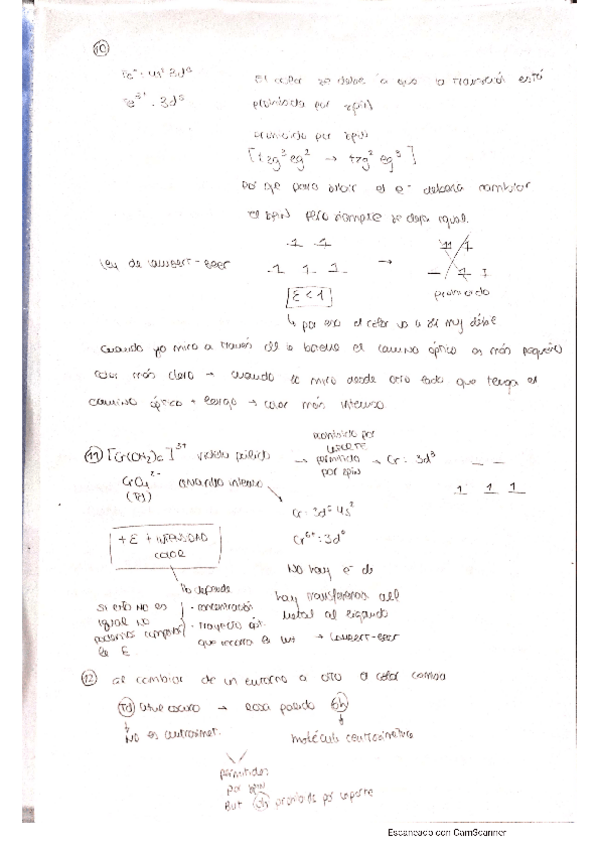 10
4s² 3d⁶
3d⁵
El color se debe a que la transición está
prohibida por spin
prohibido por spin
[t2g³ eg² → t2g² eg³]
Porque para subir el e⁻ debería cambiar
el spin pero siempre se deja igual.
1 1
Ley de Lambert-Beer
1 1 1 →
prohibido
ε < 1
↳ por eso el color va a ser muy débil
Cuando yo miro a través de la botella el camino óptico es más pequeño
color más claro → cuando lo miro desde otro lado que tenga el
camino óptico + largo → color más intenso
11 [Cr(OH2)6]³⁺ violeta pálido → prohibido por
Laporte
permitido → Cr: 3d³
por spin
1 1 1
CrO4²⁻ amarillo intenso
(Td)
Cr⁶⁺: 3d⁰
+ ε + INTENSIDAD
COLOR
No hay e⁻ d
No depende
Si esto no es
igual no
podemos comparar
la ε
· concentración
· trayecto ópt.
que recorre la luz → Lambert-Beer
hay transferencia del
metal al ligando
12 al cambiar de un entorno a otro el color cambia
Td azul oscuro → rosa pálido Oh
No es centrosimet.
molécula centrosimétrica
permitidos
por spin
But Oh prohibida por Laporte
Escaneado con CamScanner